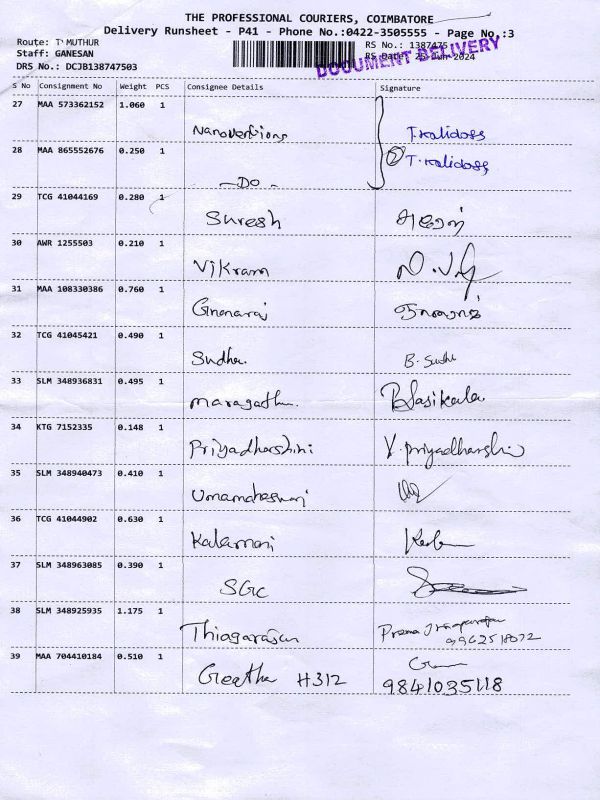 THE PROFESSIONAL COURIERS, COIMBATORE
Delivery Runsheet - P41 - Phone No.:0422-3505555 - Page No.:3
Route: T'MUTHUR
Staff: GANESAN
DRS No.: DCJB138747503
RS No.: 1387475
RS Date: -Jun-2024
DOCUMENT DELIVERY
S No Consignment No Weight PCS Consignee Details Signature
27 MAA 573362152 1.060 1
T.Kalidoss
28 MAA 865552676 0.250 1
2 T.Kalidoss
-DO-
29 TCG 41044169 0.280 1
Suresh
30 AWR 1255503 0.210 1
Vikram
31 MAA 108330386 0.760 1
Gnanaraj
32 TCG 41045421 0.490 1
Sudha B. Sudha
33 SLM 348936831 0.495 1
B Sasikala
34 KTG 7152335 0.148 1
Priyadharshini V. Priyadharshini
35 SLM 348940473 0.410 1
Umamaheswari
36 TCG 41044902 0.630 1
Kalamani
37 SLM 348963085 0.390 1
SGC
38 SLM 348925935 1.175 1
Thiagarajan
9962518072
39 MAA 704410184 0.510 1
Geetha H312
9841035118